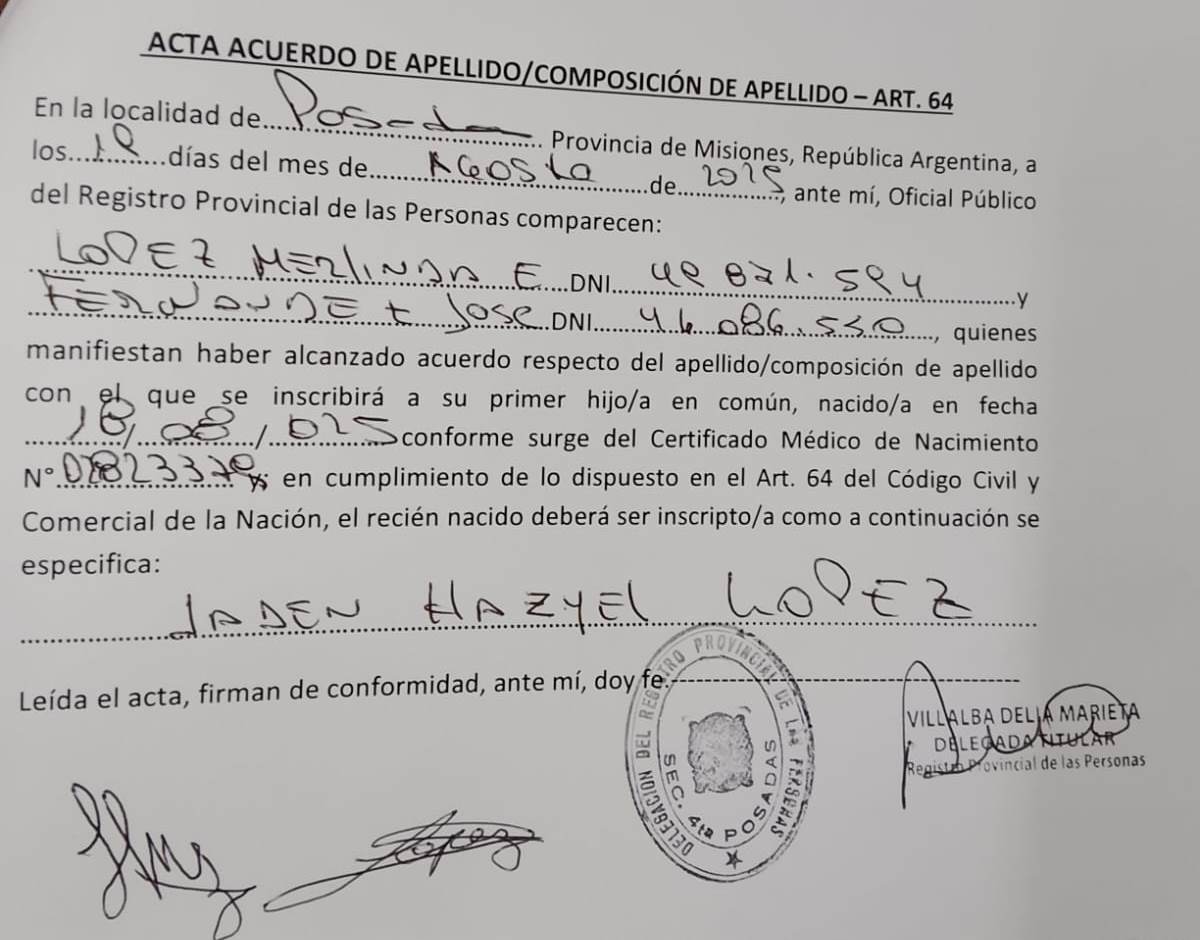 ACTA ACUERDO DE APELLIDO/COMPOSICIÓN DE APELLIDO – ART. 64
En la localidad de Posadas Provincia de Misiones, República Argentina, a
los... días del mes de Agosto de 2025, ante mí, Oficial Público
del Registro Provincial de las Personas comparecen:
LOPEZ MERLINDA E. DNI y
FERNANDEZ JOSE DNI 46.086.550, quienes
manifiestan haber alcanzado acuerdo respecto del apellido/composición de apellido
con el que se inscribirá a su primer hijo/a en común, nacido/a en fecha
18/08/025 conforme surge del Certificado Médico de Nacimiento
N° en cumplimiento de lo dispuesto en el Art. 64 del Código Civil y
Comercial de la Nación, el recién nacido deberá ser inscripto/a como a continuación se
especifica:
JADEN HAZYEL LOPEZ
Leída el acta, firman de conformidad, ante mí, doy fe.
DELEGACION DEL REGISTRO PROVINCIAL DE LAS PERSONAS
SEC. 4ta POSADAS
VILLALBA DELIA MARIETA
DELEGADA TITULAR
Registro Provincial de las Personas
Lopez